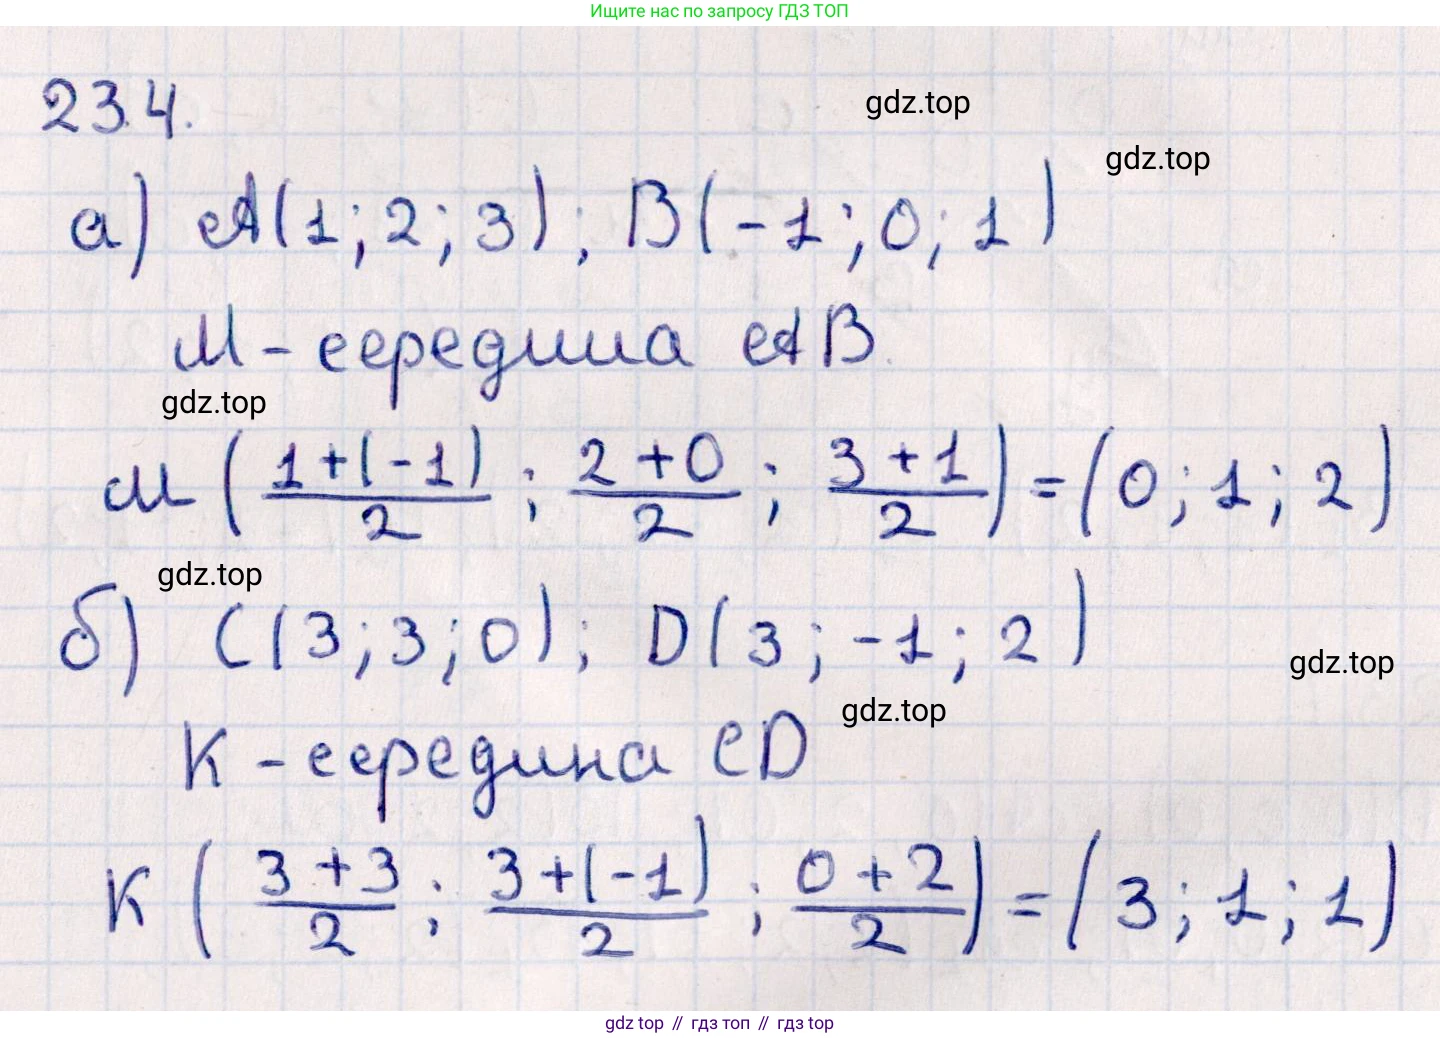 Ищите нас по запросу ГДЗ ТОП
23.4.
gdz.top
gdz.top
а) A(1; 2; 3); B(-1; 0; 1)
M - середина AB.
gdz.top
M (1+(-1)/2; 2+0/2; 3+1/2) = (0; 1; 2)
gdz.top
б) C(3; 3; 0); D(3; -1; 2)
gdz.top
gdz.top
K - середина CD
K (3+3/2; 3+(-1)/2; 0+2/2) = (3; 1; 1)
gdz top // гдз топ // gdz top